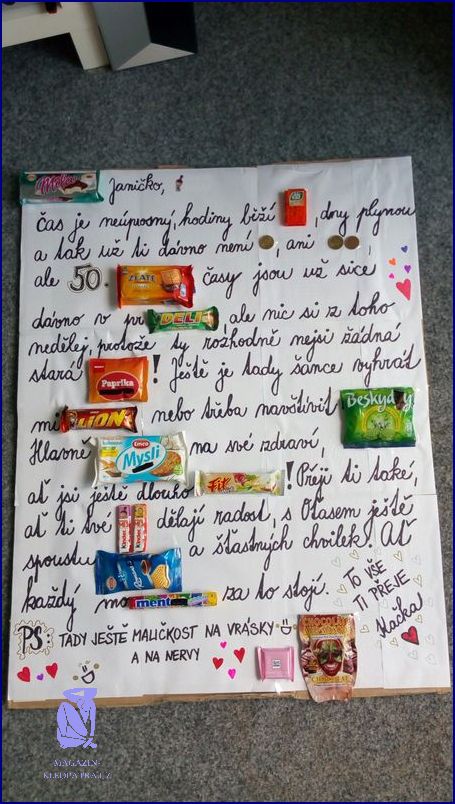 Milena Janičko,
čas je neúprosný, hodiny běží tic tac, dny plynou
a tak už ti dávno není , ani ,
ale 50. ZLATÉ časy jsou už sice
dávno v pr DELI ale nic si z toho
nedělej, protože ty rozhodně nejsi žádná
stará Paprika ! Ještě je tady šance vyhrát
mi LION nebo třeba navštívit Beskydy
Hlavně Emco Mysli na své zdraví,
ať jsi ještě dlouho Fit ! Přeji ti také,
ať ti tvé Kinder Kinder dělají radost, s Otasem ještě
spoustu a šťastných chvilek. Ať
každý mo mentos za to stojí. TO VŠE
TI PŘEJE
Hacka
PS: TADY JEŠTĚ MALIČKOST NA VRÁSKY
A NA NERVY
CHOCOLATE
MAGAZIN-
KLEOPATRA.CZ